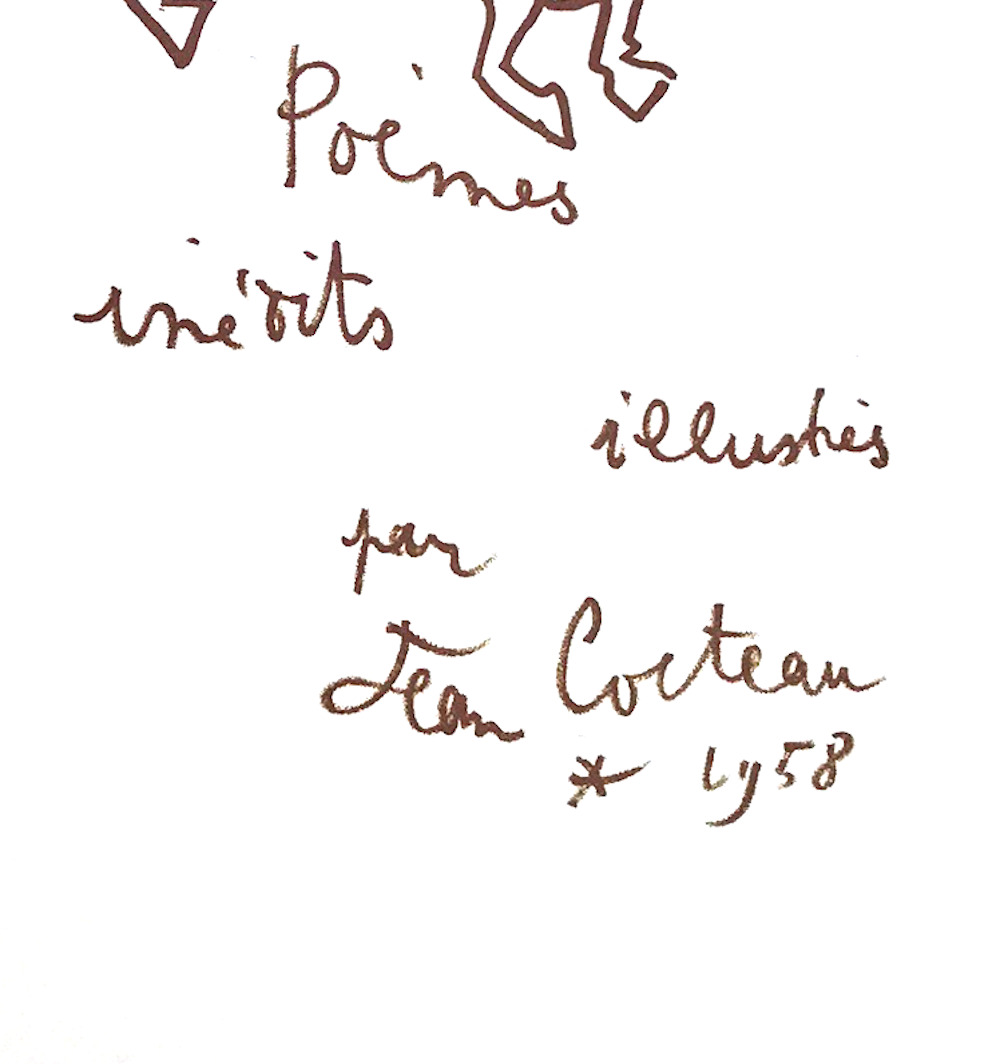 Poèmes
inédits
illustrés
par
Jean Cocteau
* 1958